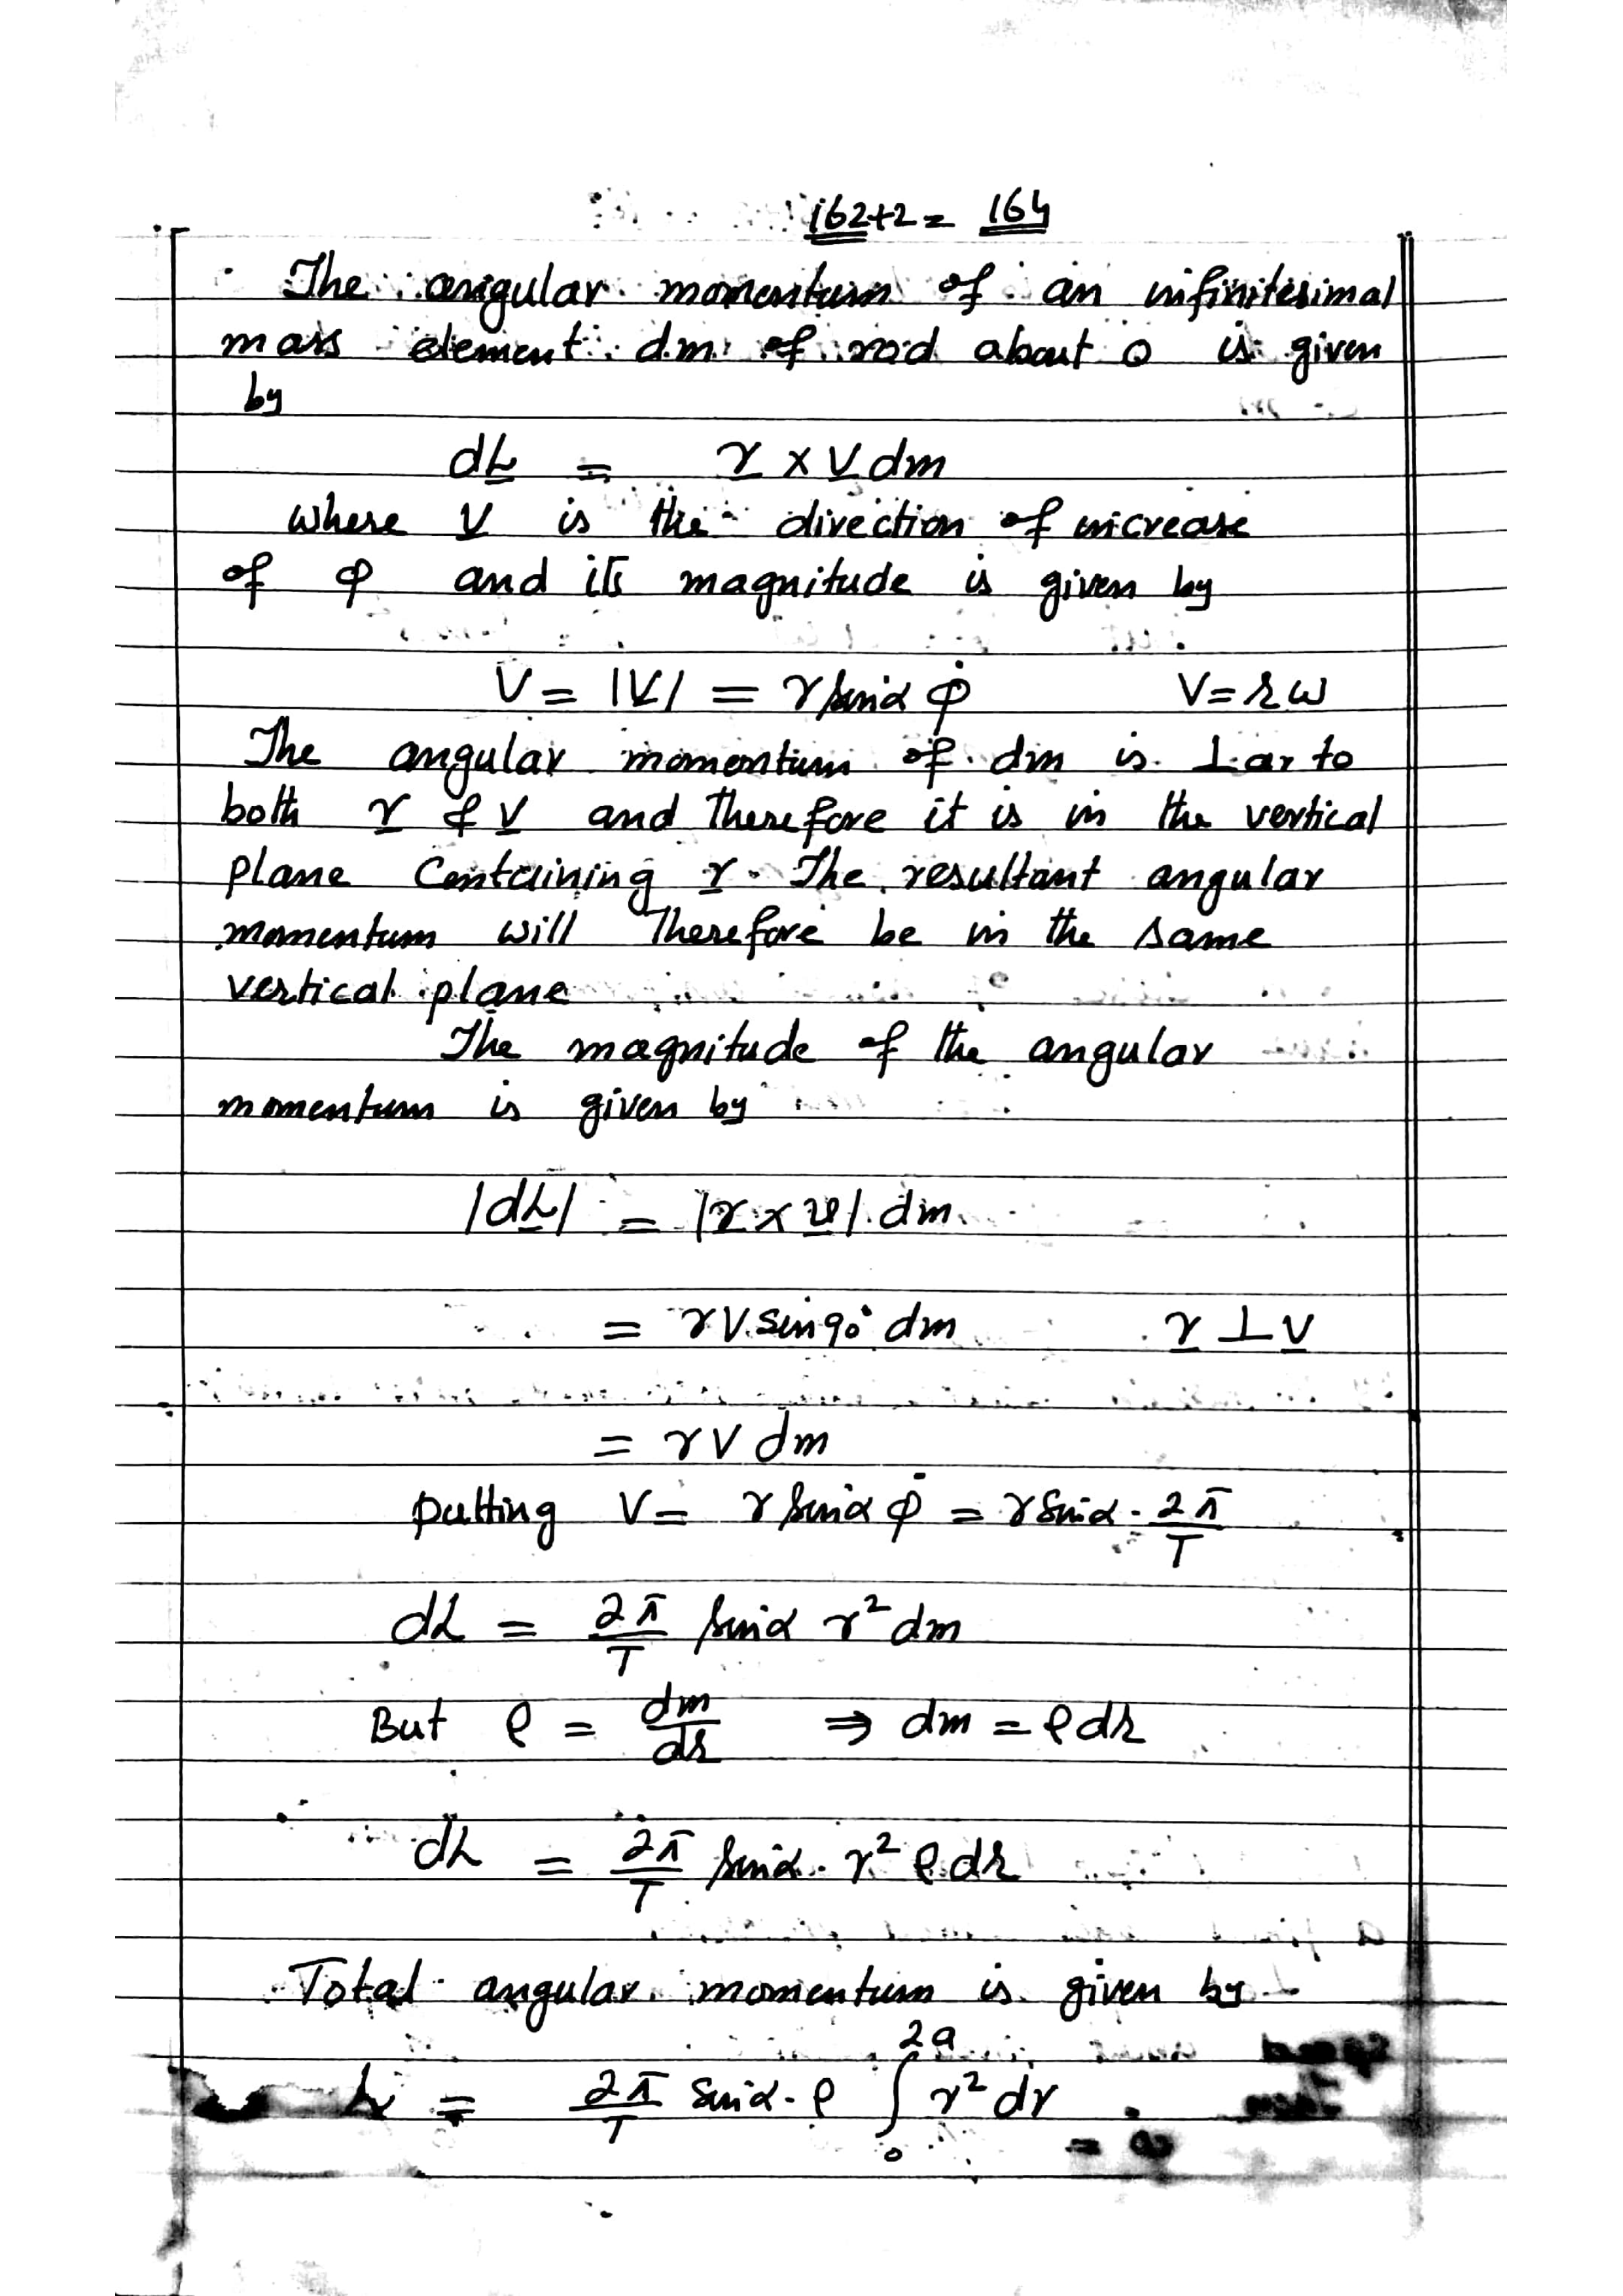 162+2 = 164
The angular momentum of an infinitesimal
mass element dm of rod about O is given
by
dL = r × V dm
where V is the direction of increase
of φ and its magnitude is given by
V = |V| = r sinα φ̇ V = rω
The angular momentum of dm is ⊥ar to
both r & V and therefore it is in the vertical
plane containing r. The resultant angular
momentum will therefore be in the same
vertical plane
The magnitude of the angular
momentum is given by
|dL| = |r × v| dm
= r V sin90° dm r ⊥ V
= r V dm
putting V = r sinα φ̇ = r sinα · 2π/T
dL = 2π/T sinα r² dm
But ρ = dm/dr ⇒ dm = ρ dr
dL = 2π/T sinα · r² ρ dr
Total angular momentum is given by
L = 2π/T sinα · ρ ∫₀²ᵃ r² dr